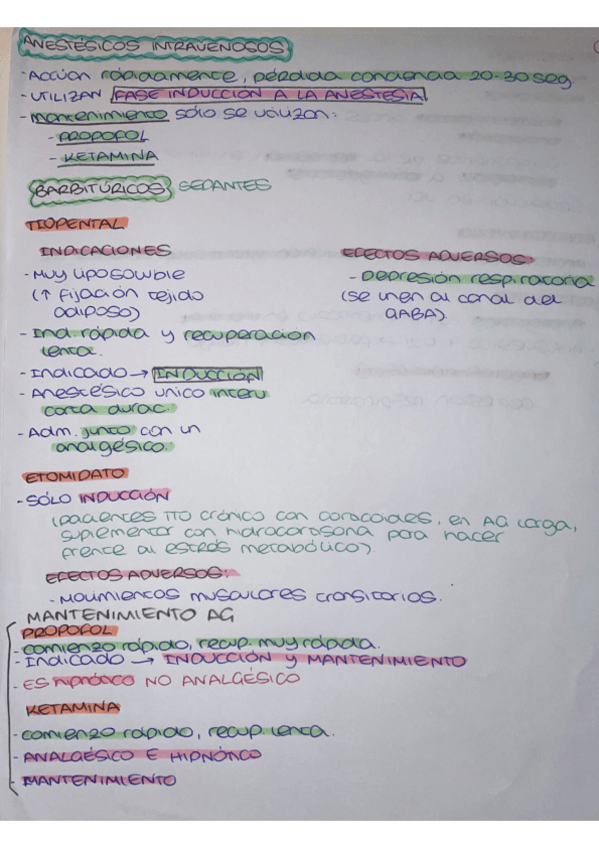 ANESTÉSICOS INTRAVENOSOS
- Acción rápidamente, pérdida conciencia 20-30 seg
- UTILIZAN FASE INDUCCIÓN A LA ANESTESIA
- Mantenimiento sólo se utilizan:
- PROPOFOL
- KETAMINA
BARBITÚRICOS SEDANTES
TIOPENTAL
INDICACIONES
- Muy liposoluble
(↑ fijación tejido
adiposo)
- Ind. rápida y recuperación
lenta.
- Indicado → INDUCCIÓN
- Anestésico unico interv
corta durac.
- Adm. junto con un
analgésico.
EFECTOS ADVERSOS:
- Depresión respiratoria
(se unen al canal del
GABA).
ETOMIDATO
- SÓLO INDUCCIÓN
(pacientes TTO crónico con corticoides, en AG larga,
suplementar con hidrocortisona para hacer
frente al estrés metabólico).
EFECTOS ADVERSOS:
- Movimientos musculares transitorios.
MANTENIMIENTO AG
PROPOFOL
- comienzo rápido, recup. muy rápida.
- Indicado → INDUCCIÓN y MANTENIMIENTO
- ES hipnótico NO ANALGÉSICO
KETAMINA
- comienzo rápido, recup. lenta.
- ANALGÉSICO E HIPNÓTICO
- MANTENIMIENTO